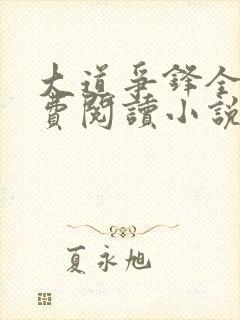 大道爭鋒全
費閱讀小說
夏永旭